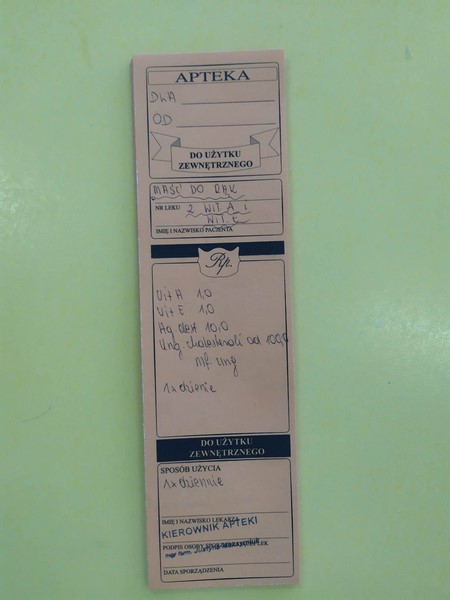 APTEKA
DLA
OD
DO UŻYTKU
ZEWNĘTRZNEGO
MAŚĆ DO RĄK
NR LEKU Z WIT. A i
WIT. E
IMIĘ I NAZWISKO PACJENTA
Rp.
Vit A 1,0
Vit E 1,0
Aq dest 10,0
Ung. cholesteroli ad 100,0
Mf. ung
1x dzienie
DO UŻYTKU
ZEWNĘTRZNEGO
SPOSÓB UŻYCIA
1x dziennie
IMIĘ I NAZWISKO LEKARZA
KIEROWNIK APTEKI
PODPIS OSOBY LEK.
DATA SPORZĄDZENIA